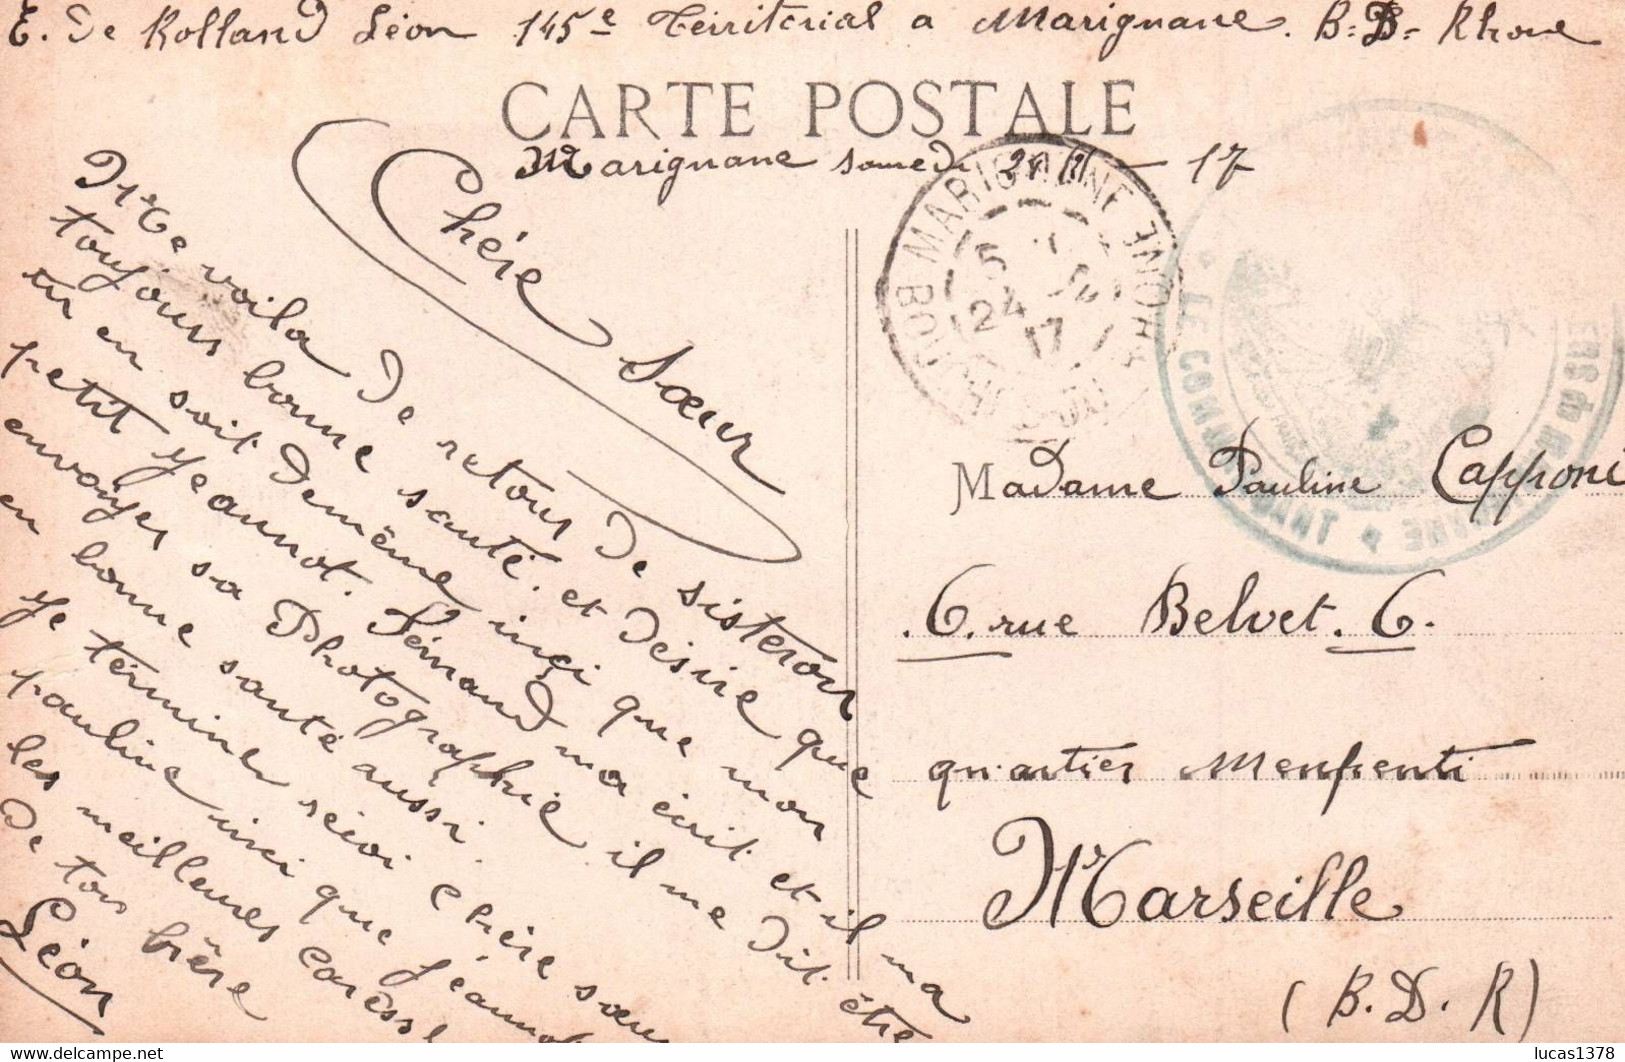 E. De Rolland Léon 145e Térritorial a Marignane. B. D. Rhone
CARTE POSTALE
Marignane samedi 17
Chére Sœur
Me voila De retour De sisteron
toujours bonne santé. et Désire que
tu en soit Demême inçi que mon
petit Jeannot. Férnand ma écrit. et il ma
envoyer sa Photographie il me Dit être
en bonne santé aussi.
Je términe réçoi chére sœur
pauline inçi que Jeannot
les meilleures carèss
De ton frêre
Léon
MARIGNANE
BOUCHES DU RHONE
24
17
LE COMMANDANT
Madame Pauline Capponi
.6. rue Belvet. 6.
quartier Menpenti
Marseille
(B. D. R)
delcampe.net
lucas1378